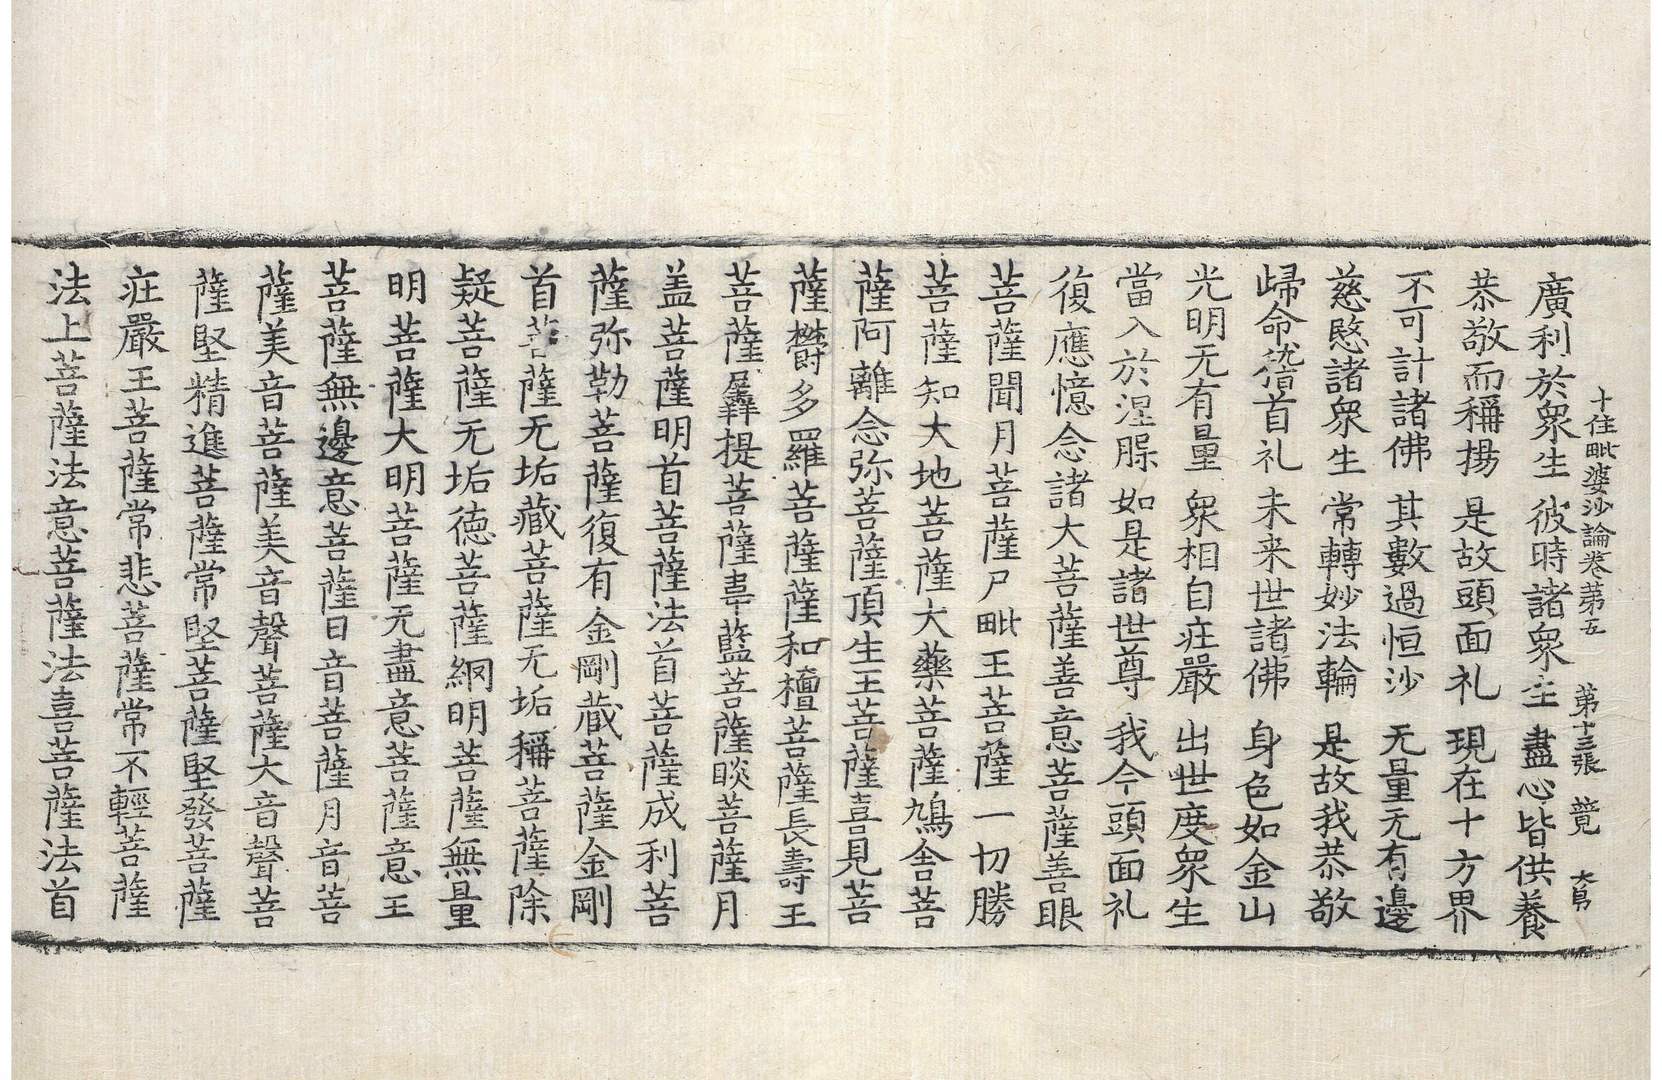 十住毗婆沙論卷第五　第十三張　竟　大皃
廣利於衆生　彼時諸衆生　盡心皆供養
恭敬而稱揚　是故頭面礼　現在十方界
不可計諸佛　其數過恒沙　无量无有邊
慈愍諸衆生　常轉妙法輪　是故我恭敬
歸命稽首礼　未来世諸佛　身色如金山
光明无有量　衆相自庄嚴　出世度衆生
當入於涅槃　如是諸世尊　我今頭面礼
復應憶念諸大菩薩善意菩薩善眼
菩薩聞月菩薩尸毗王菩薩一切勝
菩薩知大地菩薩大藥菩薩鳩舍菩
薩阿離念弥菩薩頂生王菩薩喜見菩
薩欝多羅菩薩薩和檀菩薩長壽王
菩薩羼提菩薩韋藍菩薩睒菩薩月
盖菩薩明首菩薩法首菩薩成利菩
薩弥勒菩薩復有金剛藏菩薩金剛
首菩薩无垢藏菩薩无垢稱菩薩除
疑菩薩无垢德菩薩網明菩薩無量
明菩薩大明菩薩无盡意菩薩意王
菩薩無邊意菩薩日音菩薩月音菩
薩美音菩薩美音聲菩薩大音聲菩
薩堅精進菩薩常堅菩薩堅發菩薩
庄嚴王菩薩常悲菩薩常不輕菩薩
法上菩薩法意菩薩法喜菩薩法首